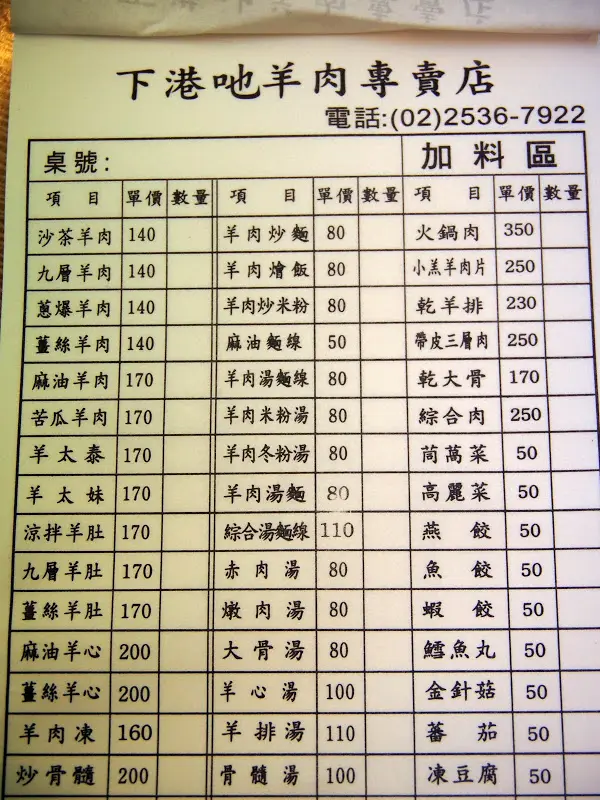 下港吔羊肉專賣店
電話:(02)2536-7922
桌號: 加料區
項目 單價 數量 項目 單價 數量 項目 單價 數量
沙茶羊肉 140 羊肉炒麵 80 火鍋肉 350
九層羊肉 140 羊肉燴飯 80 小羔羊肉片 250
蔥爆羊肉 140 羊肉炒米粉 80 乾羊排 230
薑絲羊肉 140 麻油麵線 50 帶皮三層肉 250
麻油羊肉 170 羊肉湯麵線 80 乾大骨 170
苦瓜羊肉 170 羊肉米粉湯 80 綜合肉 250
羊太泰 170 羊肉冬粉湯 80 茼萬菜 50
羊太妹 170 羊肉湯麵 80 高麗菜 50
涼拌羊肚 170 綜合湯麵線 110 燕餃 50
九層羊肚 170 赤肉湯 80 魚餃 50
薑絲羊肚 170 燉肉湯 80 蝦餃 50
麻油羊心 200 大骨湯 80 鱈魚丸 50
薑絲羊心 200 羊心湯 100 金針菇 50
羊肉凍 160 羊排湯 110 蕃茄 50
炒骨髓 200 骨髓湯 100 凍豆腐 50